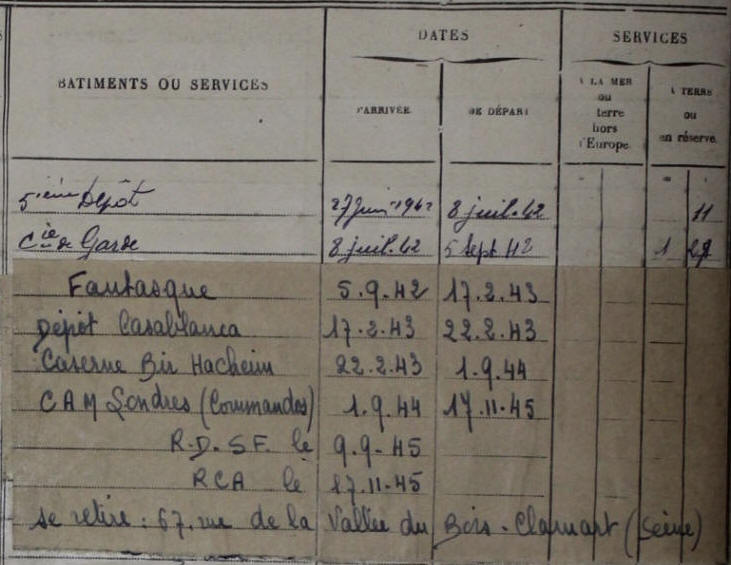 BATIMENTS OU SERVICES
DATES
D'ARRIVÉE
DE DÉPART
SERVICES
A LA MER
ou
terre
hors
d'Europe.
A TERRE
ou
en réserve.
5ième Dépôt 27 Juin 1942 8 juil. 42 11
Cie de Garde 8 juil. 42 5 Sept 42 1 28
Fantasque 5.9.42 17.2.43
Dépôt Casablanca 17.2.43 22.2.43
Caserne Bir Hacheim 22.2.43 1.9.44
CAM Londres (Commandos) 1.9.44 17.11.45
R.D.SF. le 9.9.45
RCA le 17.11.45
se retire : 67, rue de la Vallée du Bois - Clamart (Seine)